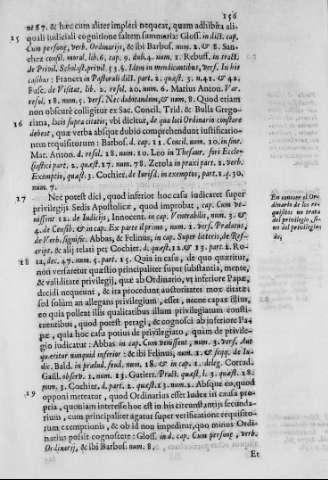 156
nu. 87. & hæc cum aliter impleri nequeat, quam adhibita ali-
15 quali judiciali cognitione saltem summaria: Gloss. in dict. cap.
Cum persona, verb. Ordinarijs, & ibi Barbos. num. 2. & 8. San-
chez consil. moral. lib. 6. cap. 9. dub. 4. num. 1. Rebuff. in tract.
de Privil. Scholast. privil. 53. §. Idem in mendicantibus, vers. In his
casibus: Frances in Pastorali dict. part. 2. quæst. 3. n. 41. & 42.
Fusc. de Visitat. lib. 2. resol. 20. num. 6. Marius Anton. Var.
resol. 18. num. 5. vers. Nec dubitandum, & num. 8. Quod etiam
non obscurè colligitur ex Sac. Concil. Trid. & Bulla Grego-
16 riana, locis supra citatis; vbi dicitur, de qua loci Ordinario constare
debeat, quæ verba absque dubio comprehendunt justificatio-
nem requisitorum: Barbos. d. cap. 11. Concil. num. 10. in fine.
Mar. Anton. d. resol. 18. num. 10. Leo in Thesaur. fori Eccle-
siastici part. 2. quæst. 17. num. 78. Zerola in praxi part. 2. verb.
Exemptis, quæst. 3. Cochier. de Iurisd. in exemptos, part. 1. q. 30.
num. 7.
17 Nec potest dici, quod inferior hoc casu iudicaret super
privilegijs Sedis Apostolicæ, quod improbat, cap. Cum ve-
nissent 12. de Iudicijs, Innocent. in cap. Venerabilis, num. 3. &
4. de Censib. & in cap. Ex parte il primo, num. 1. vers. Prælatus,
de Verb. signific. Abbas, & Felinus, in cap. Super literis, de Res-
cript. & alij relati per Cochier. d. quæst. 12 & 13. part. 1. Ro-
18 ta, dec. 47. num. 5. part. 15. Quia in casu, de quo quæritur,
non versaretur quæstio principaliter super substantia, mente,
& validitate privilegij, quæ ab Ordinario, vt inferiore Papæ,
decidi nequeunt, & ita procedunt auctoritates mox citatæ:
sed solùm an allegans privilegium, esset, necne capax illius,
eo quia polleat illis qualitatibus illum privilegianum consti-
tuentibus, quod potest peragi, & cognosci ab inferiore Pa-
pæ, quia hoc casu potius de privilegiato, quàm de privile-
gio iudicatur: Abbas in cap. Cum venissent, num. 3. vers. Aut
quæritur numquid inferior: & ibi Felinus, num. 2. & seqq. de Iu-
dic. Bald. in prælud. feud. num. 18. & in cap. 1. deleg. Corrad.
Gaill. observ. 2. num. 23. Gutier. Pract. quæst. l. 3. quæst. 18.
num. 3. Cochier. d. part. 2. quæst. 13. num. 2. Absque eo, quod
19 opponi meteatur, quod Ordinarius esset Iudex in causa pro-
pria, quoniam interesse hoc est in his circunstantijs secunda-
rium, cum principaliter agatur super verificatione requisito-
rum exemptionis, & ob id non impeditur, quo minus Ordi-
narius possit cognoscere: Gloss. in d. cap. Cum persona, verb.
Ordinarij, & ibi Barbos. num. 8.
Et
En conocer el Or-
dinario de los re-
quisitos no trata
del privilegio, si-
no del privilegia-
do,